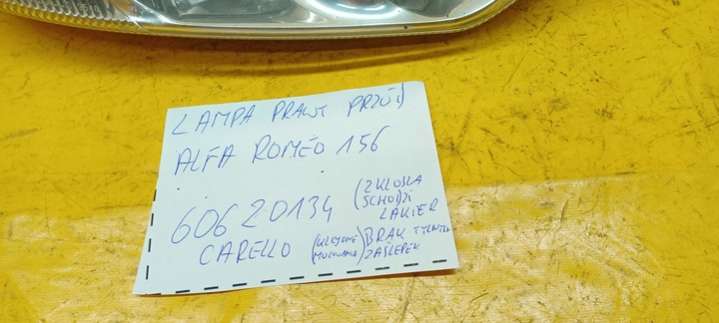 LAMPA PRAWY PRZÓD
ALFA ROMEO 156
60620134
(Z KLOSZA
SCHODZI
LAKIER
CARELLO
(KLEJONE
MOCOWANIE)
BRAK TYLNYCH
ZAŚLEPEK